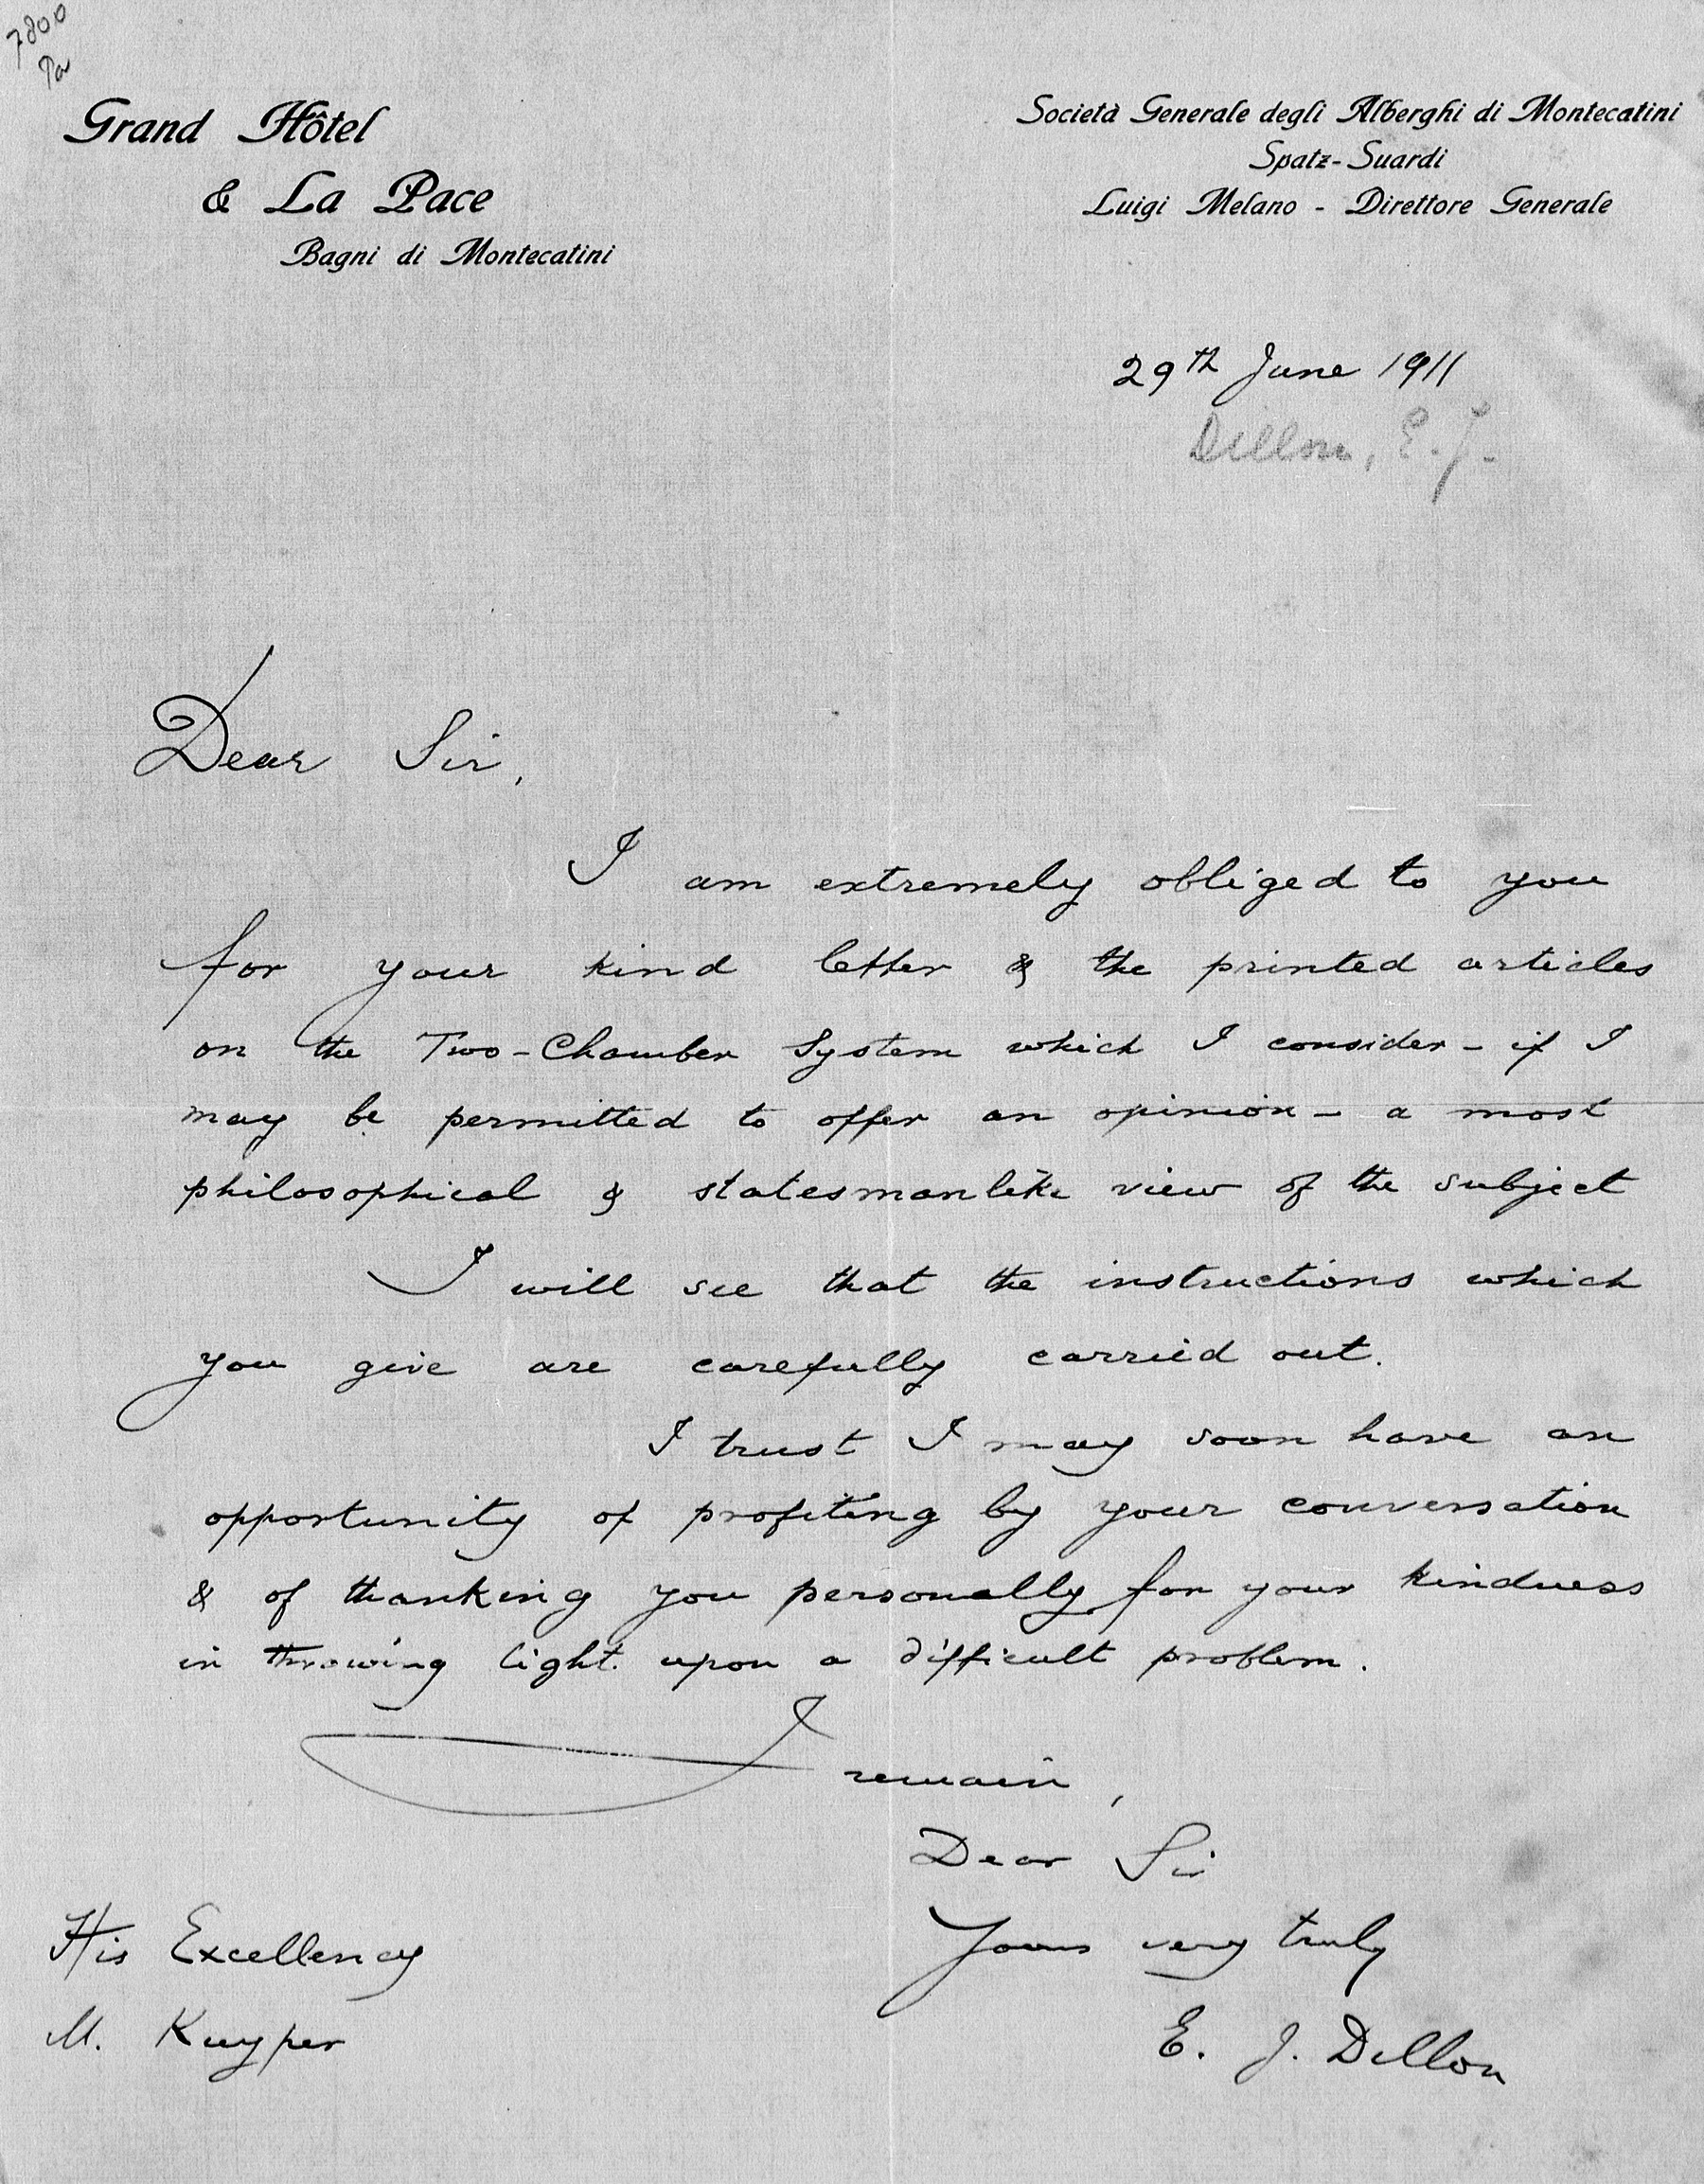 7800
Pa
Grand Hôtel
& La Pace
Bagni di Montecatini
Società Generale degli Alberghi di Montecatini
Spatz-Suardi
Luigi Melano - Direttore Generale
29th June 1911
Dillon, E. J.
Dear Sir,
I am extremely obliged to you
for your kind letter & the printed articles
on the Two-Chamber System which I consider - if I
may be permitted to offer an opinion - a most
philosophical & statesmanlike view of the subject
I will see that the instructions which
you give are carefully carried out.
I trust I may soon have an
opportunity of profiting by your conversation
& of thanking you personally for your kindness
in throwing light upon a difficult problem.
I remain,
Dear Sir
Yours very truly
E. J. Dillon
His Excellency
M. Kuyper